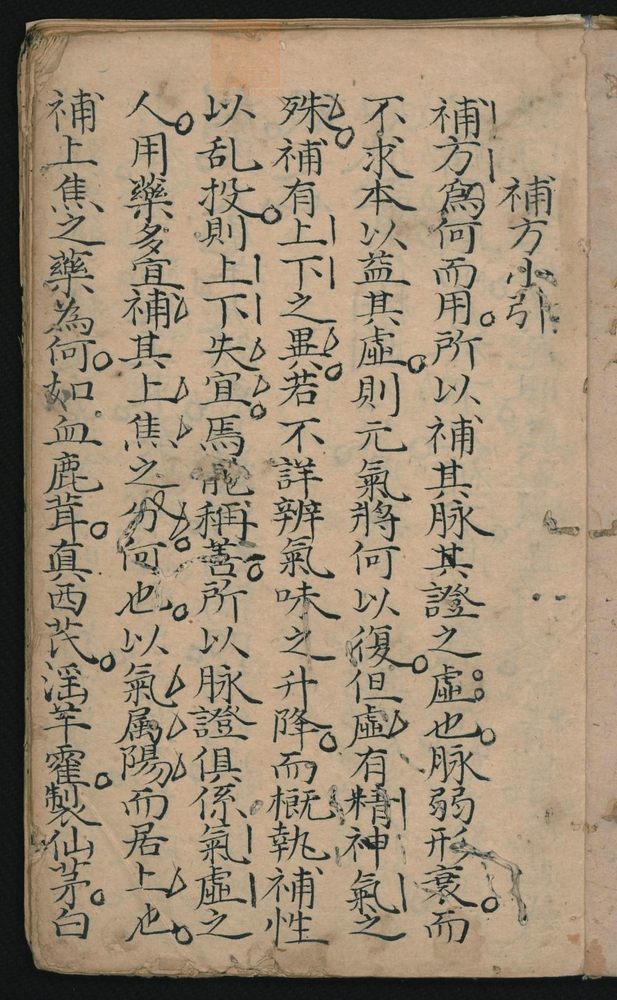 補方小引
補方爲何而用所以補其脉其證之虛也脉弱形衰而
不求本以益其虛則元氣將何以復但虛有精神氣之
殊補有上下之異若不詳辨氣味之升降而概執補性
以乱投則上下失宜焉能稱善所以脉證俱係氣虛之
人用藥多宜補其上焦之分何也以氣属陽而居上也
補上焦之藥為何如血鹿茸真西芪淫羊霍製仙茅白